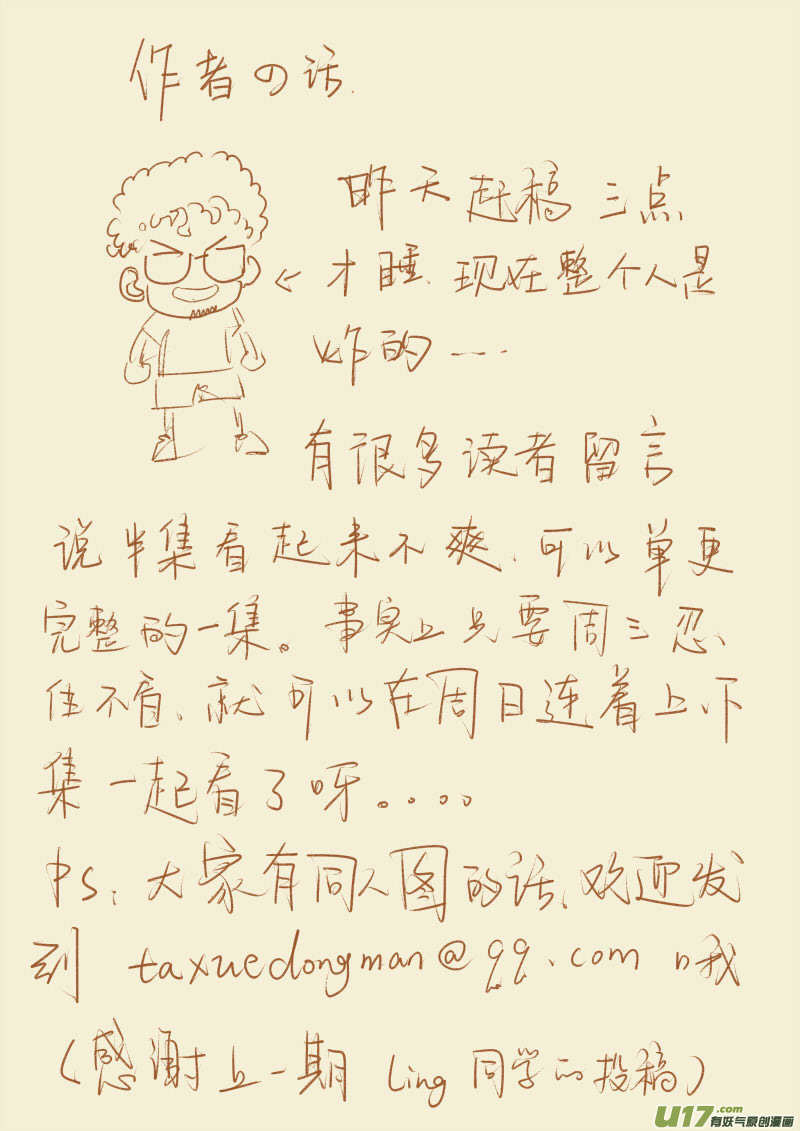 作者の话.
昨天赶稿三点
才睡.现在整个人是
炸的....
有很多读者留言
说半集看起来不爽、可以单更
完整的一集。事实上只要周三忍
住不看、就可以在周日连着上下
集一起看了呀。。。。
PS:大家有同人图的话、欢迎发
到 taxuedongman@qq.com 哦
(感谢上一期 Ling 同学的投稿)
U17.com
有妖气原创漫画